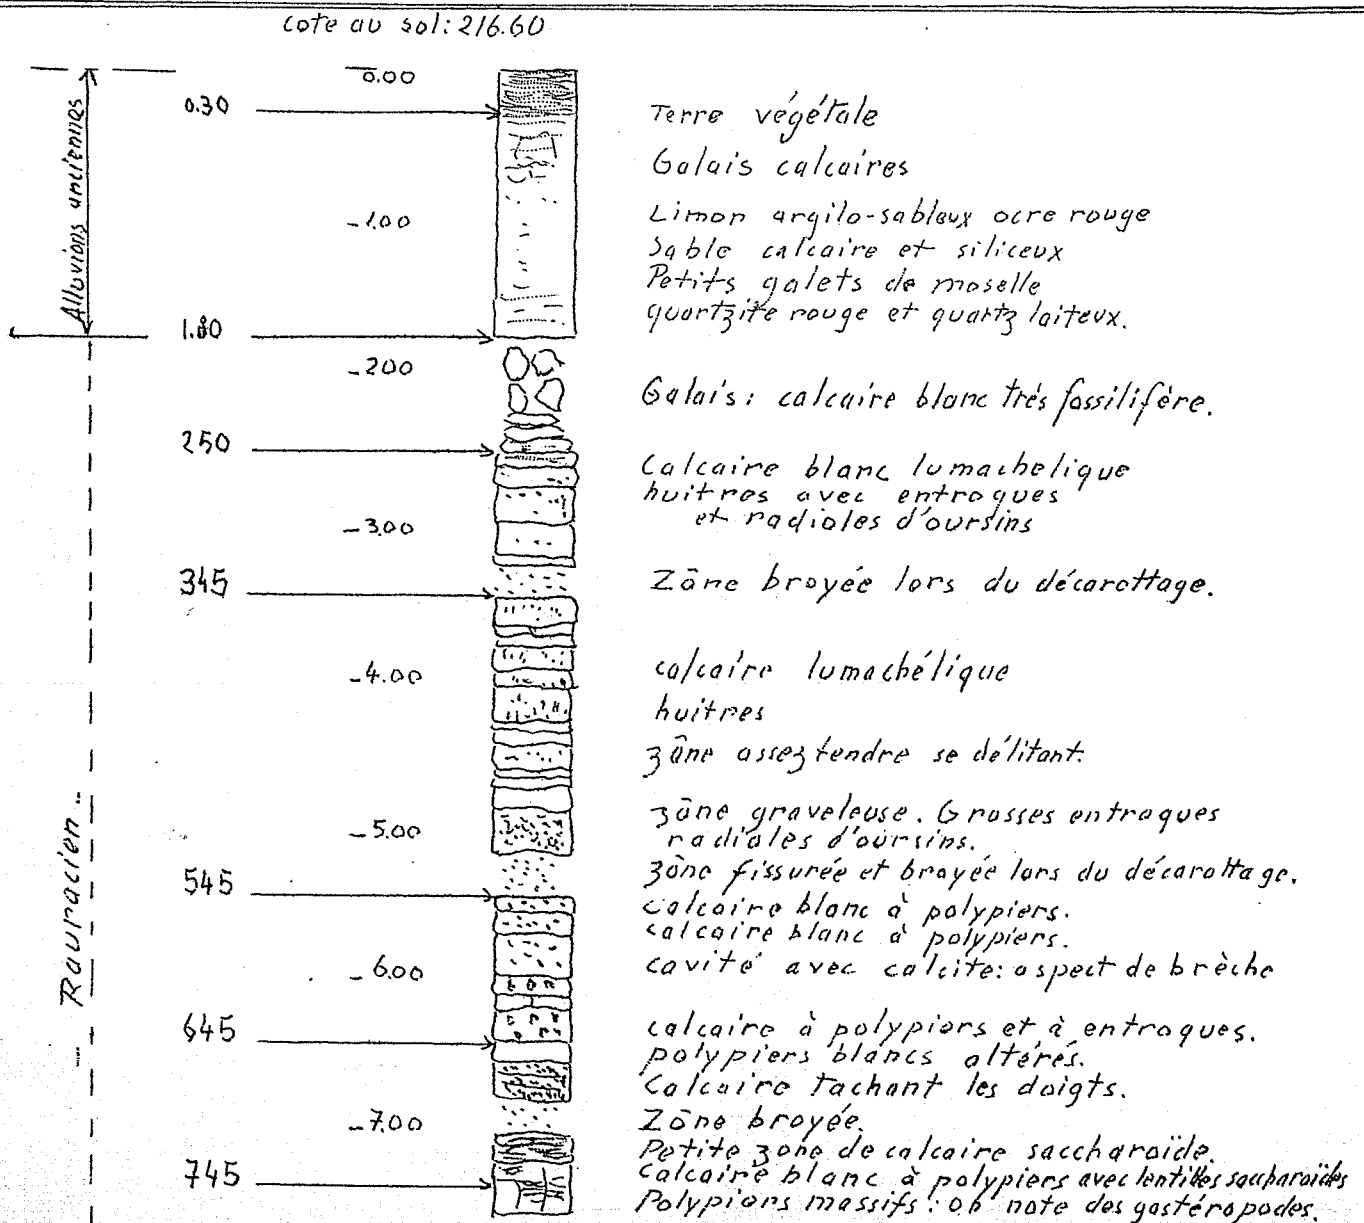 cote au sol: 216.60
0.00
0.30
Terre végétale
Galais calcaires
Alluvions anciennes
-1.00
Limon argilo-sableux ocre rouge
Sable calcaire et siliceux
Petits galets de moselle
quartzite rouge et quartz laiteux.
1.80
-2.00
Galais: calcaire blanc très fossilifère.
250
Calcaire blanc lumachelique
huitres avec entroques
et radioles d'oursins
-3.00
345
Zône broyée lors du décarottage.
-4.00
calcaire lumachélique
huitres
zône assez tendre se délitant.
zône graveleuse. Grosses entroques
radioles d'oursins.
-5.00
zône fissurée et broyée lors du décarottage.
545
calcaire blanc à polypiers.
calcaire blanc à polypiers.
-6.00
cavité avec calcite: aspect de brèche
Rauracien
645
calcaire à polypiers et à entroques.
polypiers blancs altérés.
Calcaire tachant les doigts.
-7.00
Zône broyée.
Petite zone de calcaire saccharoïde.
745
calcaire blanc à polypiers avec lentilles saccharoïdes
Polypiers massifs: on note des gastéropodes.